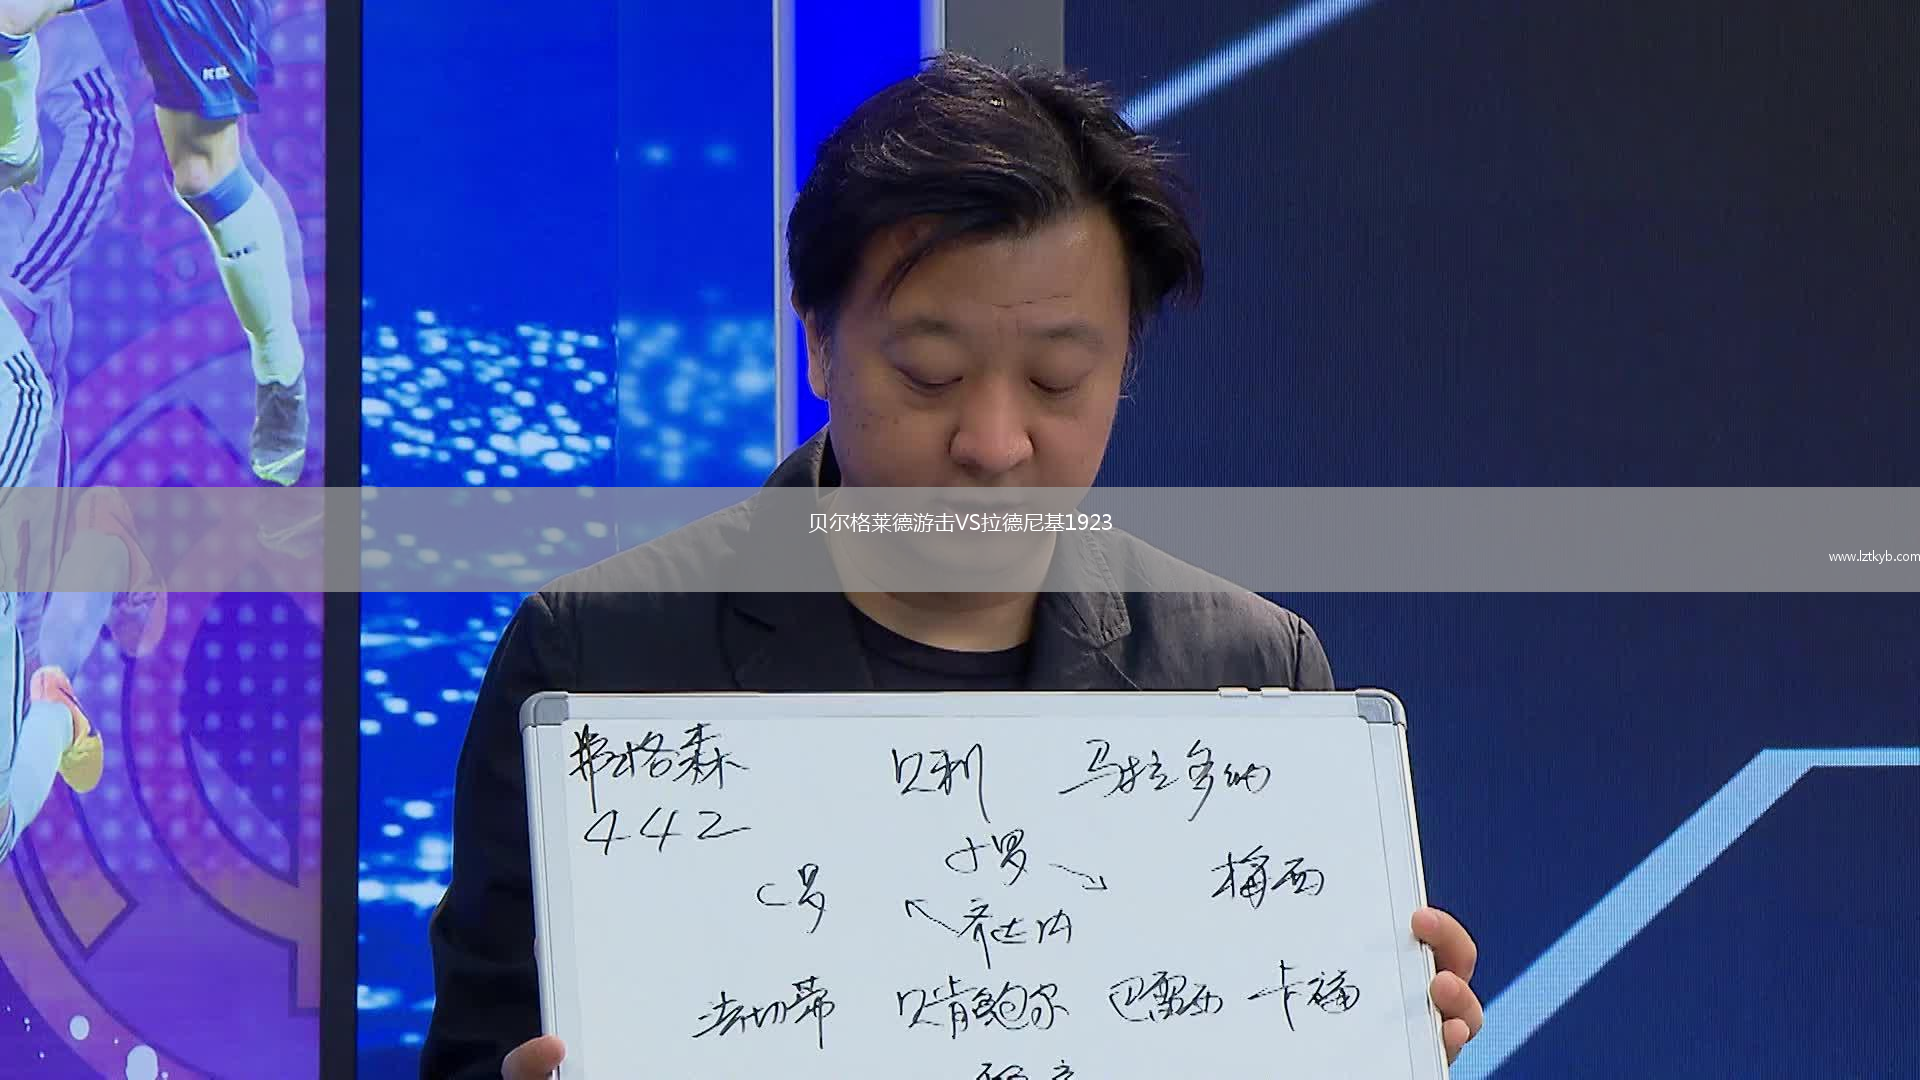 KE
贝尔格莱德游击VS拉德尼基1923
www.lztkyb.com
弗格森 贝利 马拉多纳
442
小罗
C罗 梅西
齐达内
法切蒂 贝肯鲍尔 巴雷西 卡福